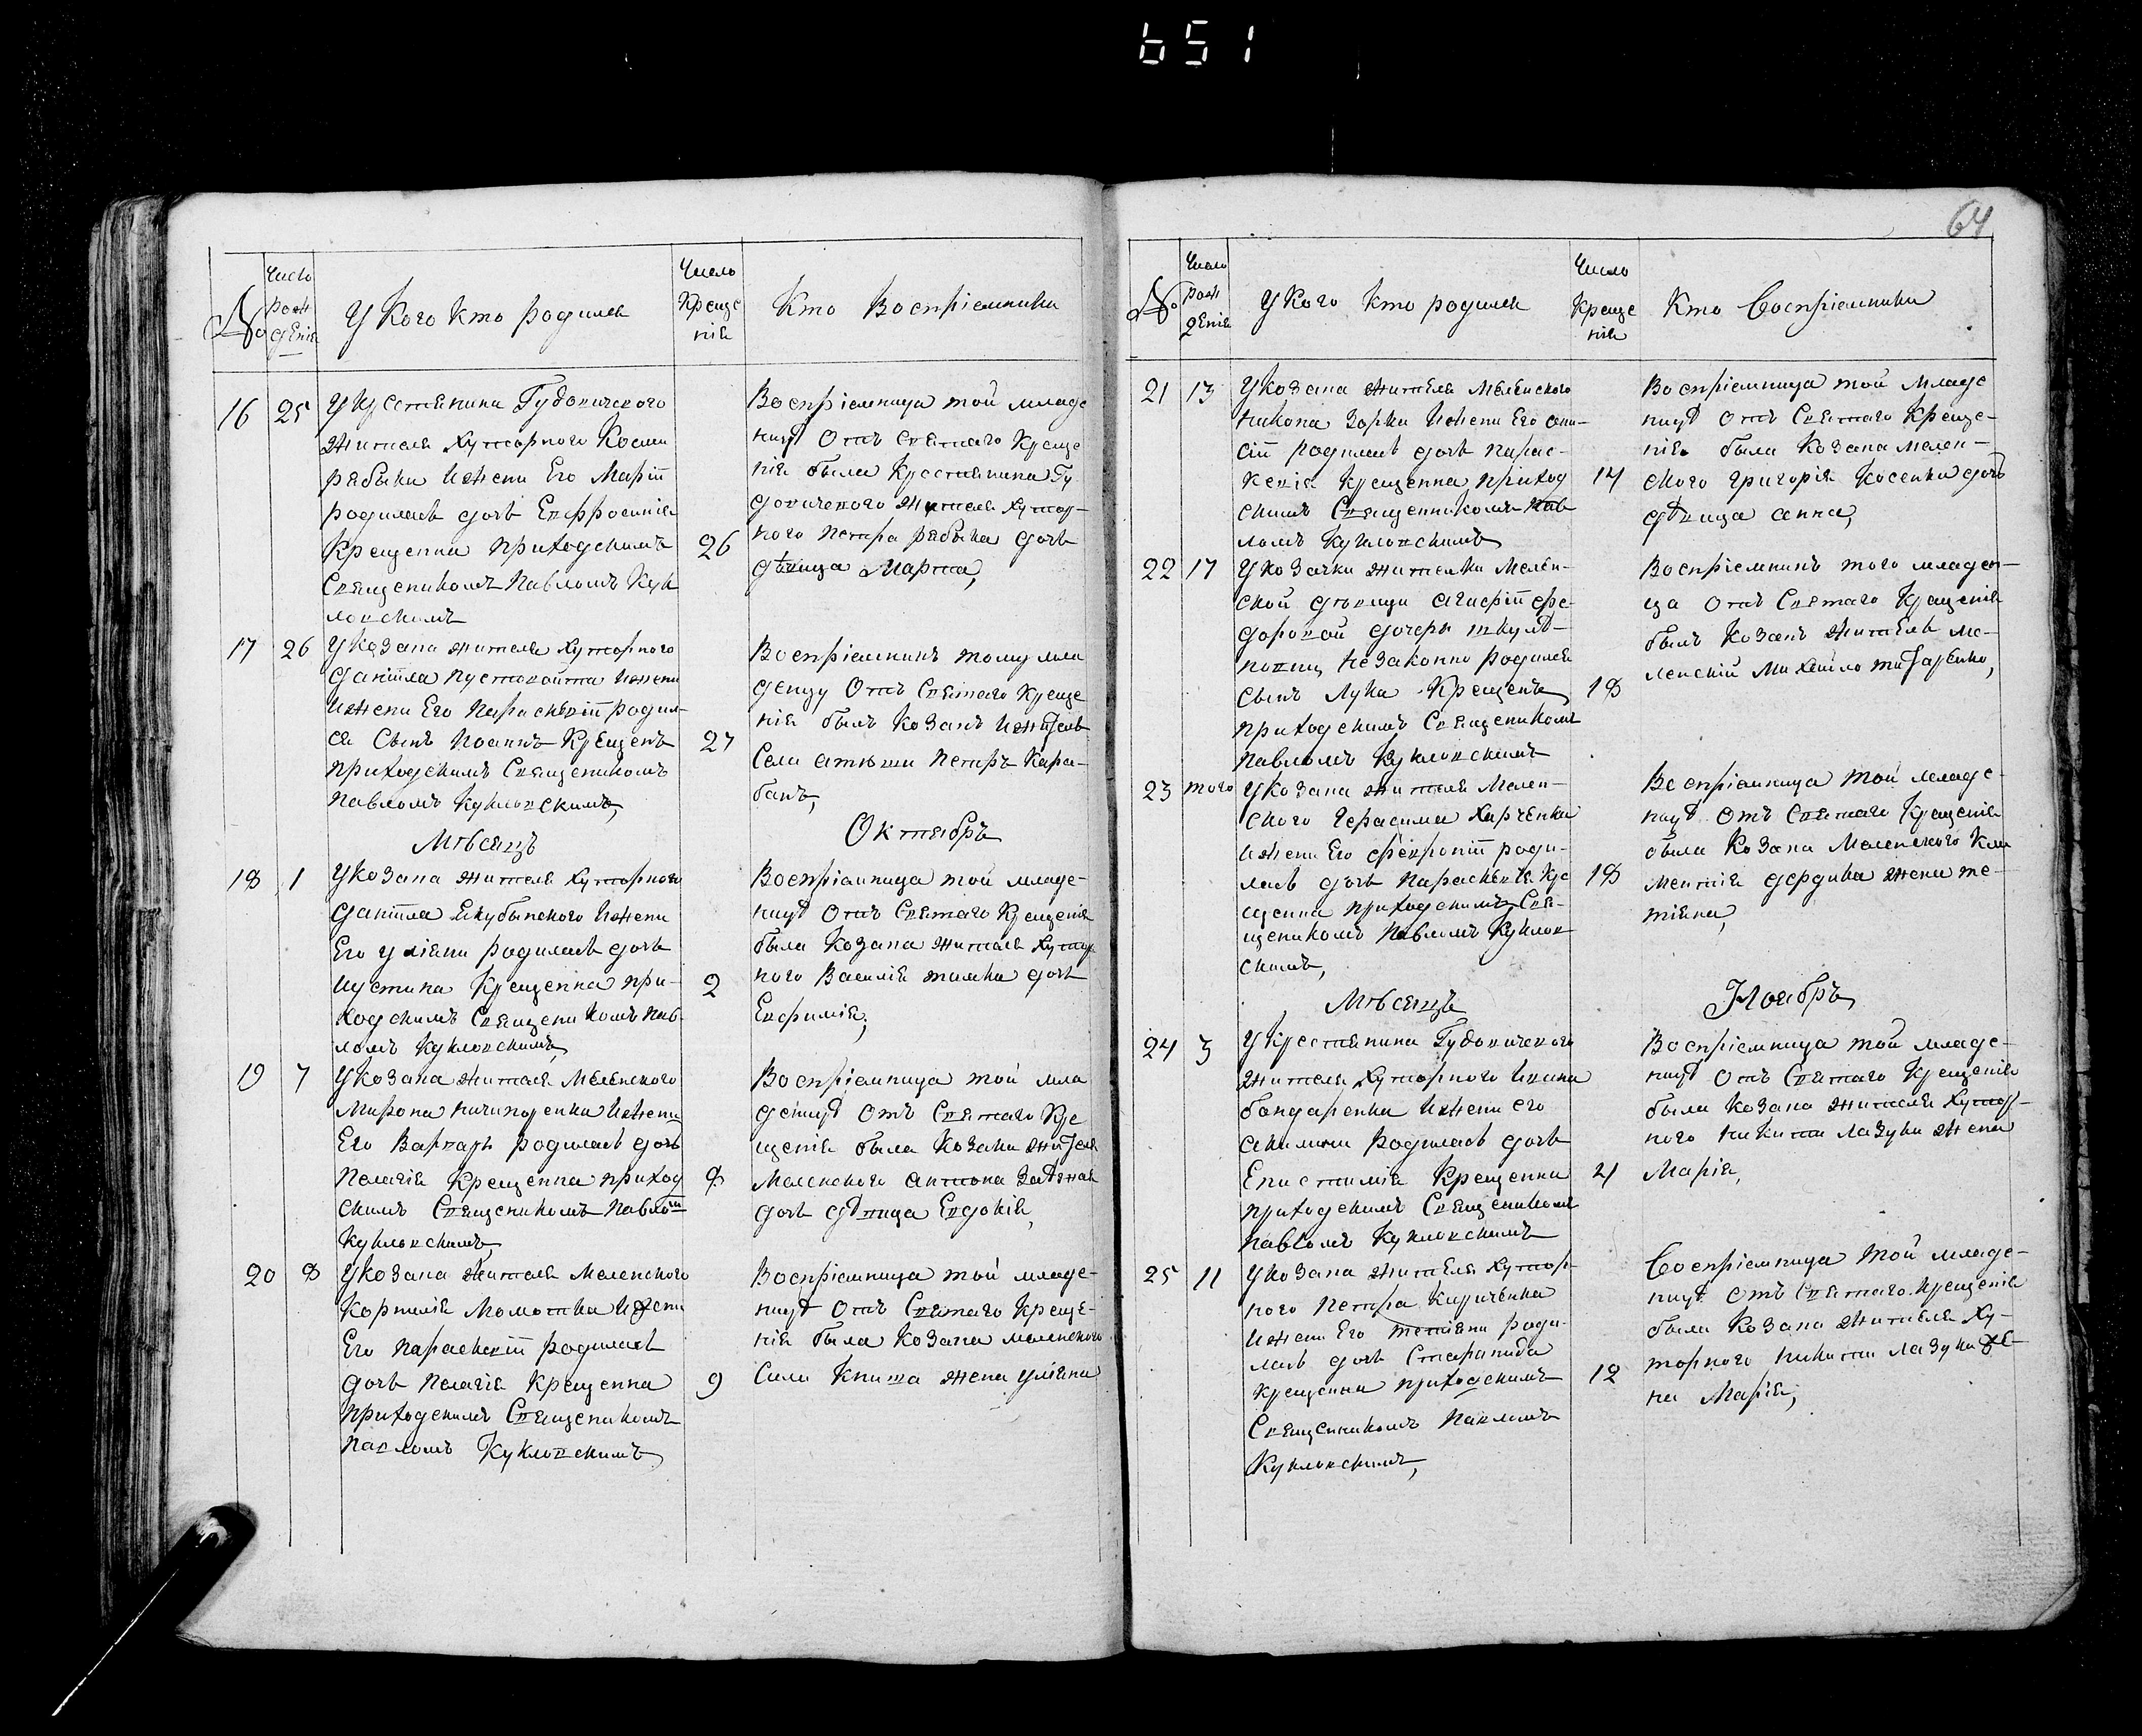 651
64
№
Число
рож
денія
У Кого Кто родился
Число
Креще
нія
Кто Воспріемники
16
25
У Крестянина Гудовичского
жителя Хуторного Космы
рябыки Ижены Его Маріи
родилась дочь Евфросинія
Крещенна Приходскимъ
26
Священикомъ Павломъ Кук
ловскимъ
Воспріемница той младе
ницѣ Отъ Святаго Креще
нія была Крестянина Гу
довичского жителя Хутор-
ного Петра рябыка дочь
дѣвица Марта,
17
26
У Козака жителя Хуторного
Даніила Пустовойта Ижени
Ижены Его Параскевіи родил-
ся Сынъ Иоаннъ Крещенъ
27
Приходскимъ Священикомъ
Павломъ Куkловскимъ,
Воспріемникъ тому мла
денцу Отъ Святаго Креще
нія былъ Козакъ Ижитель
Села Петръ Кара-
банъ,
Мѣсяцъ
Октябрь
18
1
У Козака жителя Хуторного
Даніила Якубынского Ижены
Его Уліяни родилась дочь
Иустина Крещенна при-
2
ходскимъ Священикомъ Пав-
ломъ Кукловскимъ,
Воспріемница той младе-
ницѣ Отъ Святаго Крещенія
была Козака жителя Хутор
ного Василія дочь
Евфимія,
19
7
У Козака жителя Меленского
Мирона ничипоренка Ижены
Его Варвары родилась дочь
Пелагія Крещенна приход
8
скимъ Священикомъ Павлом
Кукловскимъ,
Воспріемница той мла
деницѣ Отъ Святаго Кре
щенія была Козака жителя
Меленского Антона
дочь дѣвица Евдокія,
20
8
У Козака жителя Меленского
Корнилія Момотка Ижени
Его Параскевіи родилась
дочь Пелагія Крещенна
9
Приходскимъ Священикомъ
Павломъ Кукловскимъ
Воспріемница той младе-
ницѣ Отъ Святаго Креще-
нія была Козака меленского
Сили Книша жена уліяна
№
Число
рож
денія
У Кого Кто родился
Число
Креще
нія
Кто Воспріемники
21
13
У Козака жителя Меленского
Никона Зорки Ижены Его они-
сіи родилась дочь Парас-
кевія Крещенна приход
14
скимъ Священникомъ Пав
ломъ Кукловскимъ
Воспріемница той младе
ницѣ Отъ Святаго Креще-
нія была Козака мелен-
ского Григорія Косенка дочь
дѣвица анна,
22
17
У Козачки жителки Мелен-
ской дѣвици Агафіи фе-
доровой дочери шкулѣ-
повны Незаконно родился
Сынъ Лука Крещенъ
18
приходскимъ Священикомъ
Павломъ Кукловскимъ
Воспріемникъ того младен-
ца Отъ Святаго Крещенія
былъ Козакъ житель ме-
ленскій Михайло титаренко,
23
того
У Козака жителя Мелен-
ского Герасима Харченка
Ижены Его февроніи роди-
лась дочь Параскевія Кре
18
щенна приходскимъ Свя-
щеникомъ Павломъ Куклов
скимъ,
Воспріемница той младе-
ницѣ Отъ Святаго Крещенія
была Козака Меленского Кли
ментія дердика жена те-
тіяна,
Мѣсяцъ
Ноябрь
24
3
У Крестянина Гудовичского
жителя Хуторного Ивана
бондаренка Ижены его
Акилины родилась дочь
Епистимія Крещенна
4
приходскимъ Священикомъ
Павломъ Кукловскимъ
Воспріемница той младе-
ницѣ Отъ Святаго Крещенія
была Козака жителя Хутор-
ного Никиты Лазуки жена
Марія,
25
11
У Козака жителя Хутор-
ного Петра Кириченка
Ижены Его тетіяни роди-
лась дочь Стаpанида
Крещенна приходскимъ
12
Священникомъ Павломъ
Кукловскимъ,
Воспріемница той младе-
ницѣ отъ Святаго Крещенія
была Козака жителя Ху-
торного Никиты Лазуки же-
на Марія,